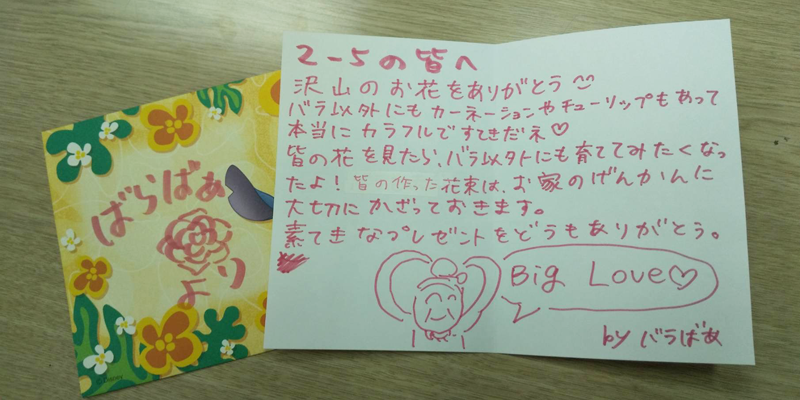 ばらばぁ
より
©Disney
2-5の皆へ
沢山のお花をありがとう
バラ以外にもカーネーションやチューリップもあって
本当にカラフルですてきだネ♡
皆の花を見たら、バラ以外にも育ててみたくなっ
たよ!皆の作った花束は、お家のげんかんに
大切にかざっておきます。
素てきなプレゼントをどうもありがとう。
Big Love♡
by バラばぁ